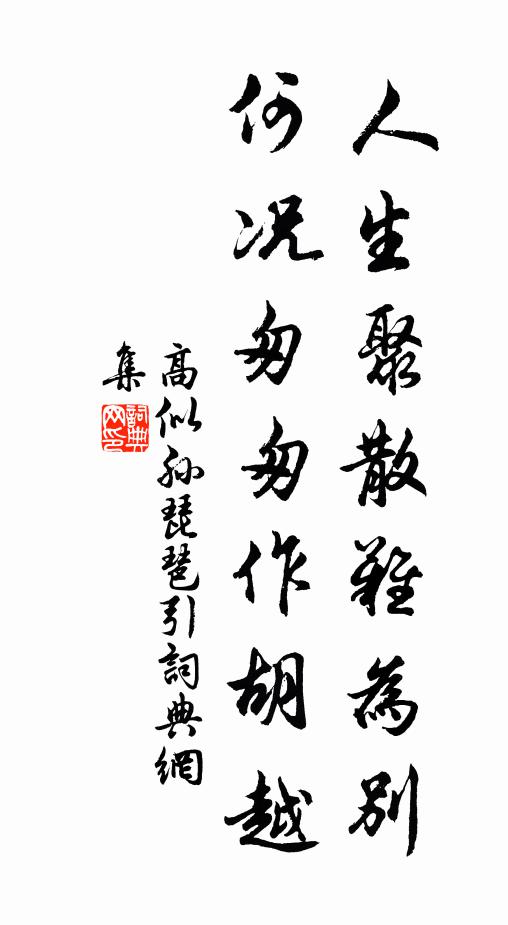 人生聚散難為別
何况匆匆作胡越
高似孫琵琶引詞典網
集
詞典
网印